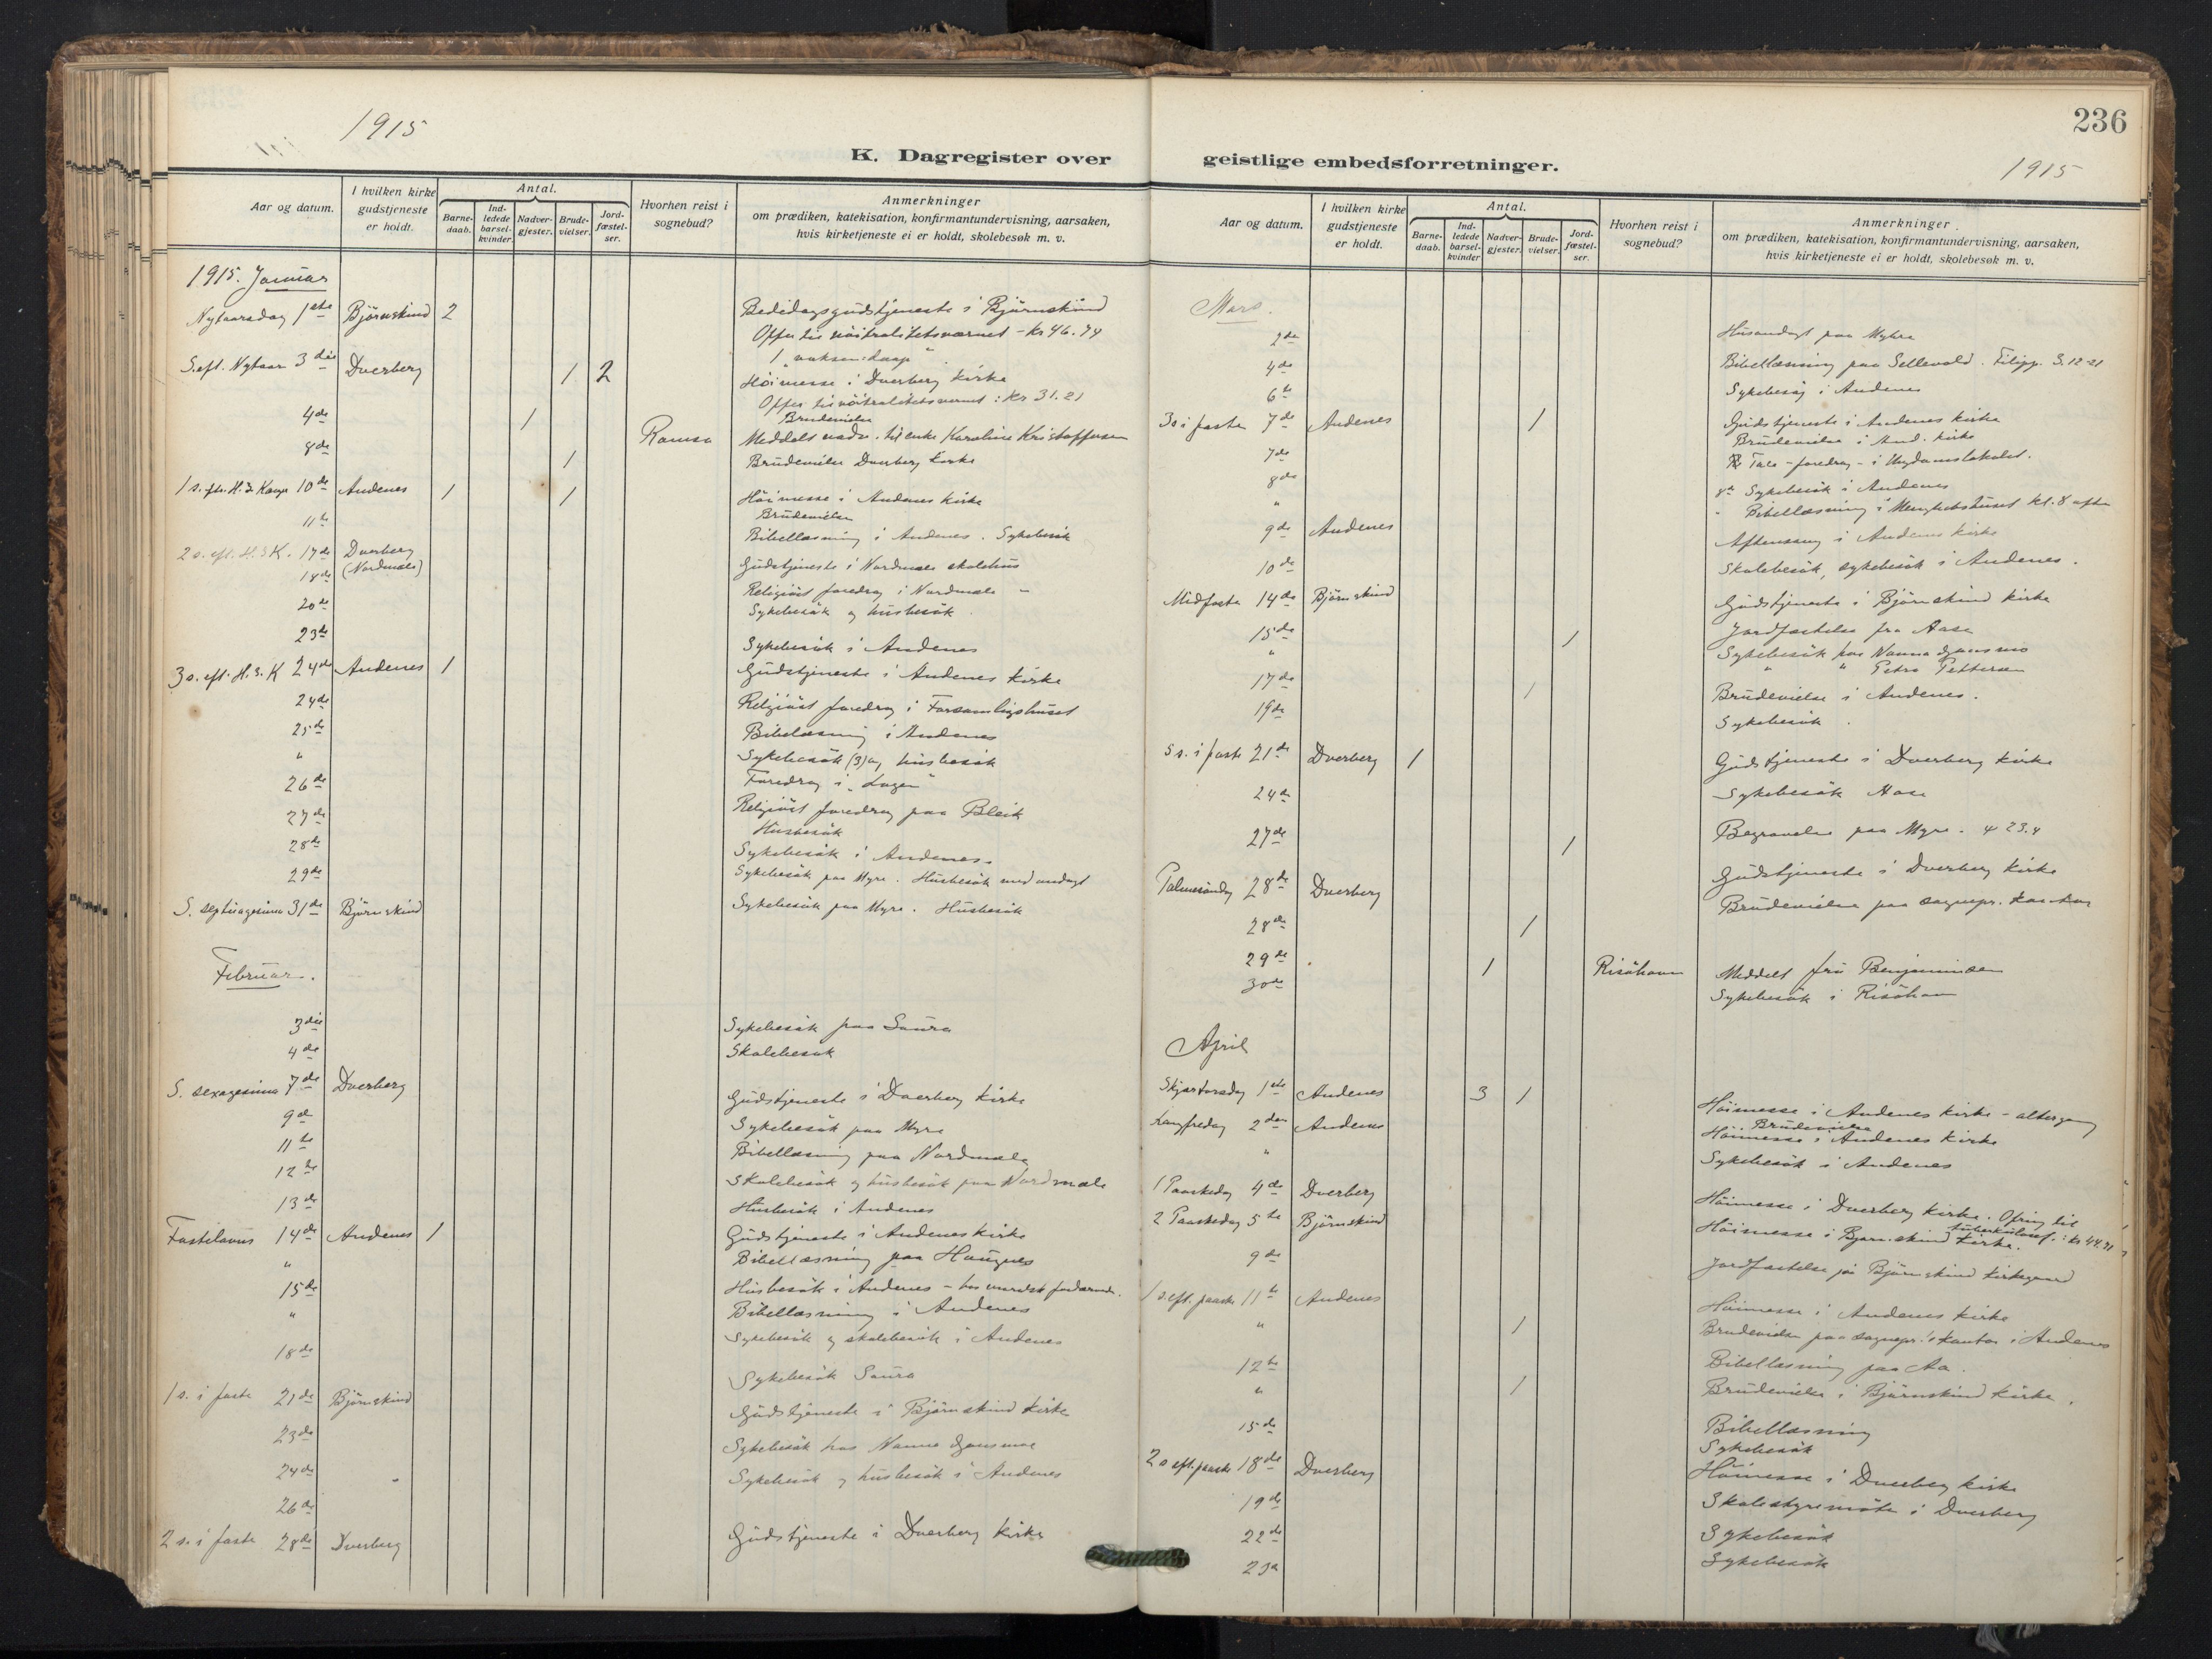 1915
K. Dagregister over
Aar og datum.
I hvilken kirke gudstjeneste er holdt.
Antal.
Barne-daab.
Ind-ledede barsel-kvinder.
Nadver-gjester.
Brude-vielser.
Jord-fæstel-ser.
Hvorhen reist i sognebud?
Anmerkninger
om prædiken, katekisation, konfirmantundervisning, aarsaken,
hvis kirketjeneste ei er holdt, skolebesøk m. v.
1915. Januar
Nytaarsdag 1ste Björnskind 2 Bededagsgudstjeneste i Björnskind
Offer til nöitralitetsværnet - kr 46.74
1 "voksen: daap"
S. eft. Nytaar 3die Dverberg 1 2 Höimesse i Dverberg kirke
Offer til nöitralitetsvernet: kr 31.21
Brudevielse
4de 1 Ramsa Meddelt nadv. til enke Karoline Kristoffersen
8de 1 Brudevielse Dverberg kirke
1 s. eft. H. 3 Konger 10de Andenes 1 1 Höimesse i Andenes kirke
Brudevielse
11te Bibellæsning i Andenes. Sykebesök
2 s. eft. H. 3 K. 17de Dverberg (Nordmæle) Gudstjeneste i Nordmæle skolehus
18de Religiöst foredrag i Nordmæle
20de Sykebesök og husbesök.
23de Sykebesök i Andenes
3 s. eft. H. 3. K 24de Andenes 1 Gudstjeneste i Andenes kirke
24de Religiöst foredrag i Forsamlingshuset
25de Bibellæsning i Andenes
" Sykebesök (3) og husbesök
26de Foredrag i "Logen"
27de Religiöst foredrag paa Bleik
Husbesök
28de Sykebesök i Andenes.
29de Sykebesök paa Myre. Husbesök med andagt
S. septuagesima 31de Björnskind Sykebesök paa Myre. Husbesök
Februar.
3die Sykebesök paa Saura
4de Skolebesök
S. sexagesima 7de Dverberg Gudstjeneste i Dverberg kirke
9de Sykebesök paa Myre
11te Bibellæsning paa Nordmæle
12te Skolebesök og husbesök paa Nordmæle
13de Husbesök i Andenes
Fastelavns 14de Andenes 1 Gudstjeneste i Andenes kirke
" Bibellæsning paa Haugnes
15de Husbesök i Andenes - hos
" Bibellæsning i Andenes
Sykebesök og skolebesök i Andenes
18de Sykebesök Saura
1 s. i faste 21de Björnskind Gudstjeneste i Björnskind kirke
23de Sykebesök hos Nanna
24de Sykebesök og husbesök i Andenes
26de
2 s. i faste 28de Dverberg Gudstjeneste i Dverberg kirke
236
1915
geistlige embedsforretninger.
Aar og datum.
I hvilken kirke gudstjeneste er holdt.
Antal.
Barne-daab.
Ind-ledede barsel-kvinder
Nadver-gjester.
Brude-vielser.
Jord-fæstel-ser.
Hvorhen reist i sognebud?
Anmerkninger
om prædiken, katekisation, konfirmantundervisning, aarsaken,
hvis kirketjeneste ei er holdt, skolebesøk m. v.
Mars.
2de Husandagt paa Myhre
4de Bibellæsning paa Sellevold. Filipp. 3.12-21
6te Sykebesög i Andenes
3 s i faste 7de Andenes 1 Gudstjeneste i Andenes kirke
Brudevielse i And. kirke
7de Tale - foredrag - i Ungdomslokalet.
8de 8de Sykebesök i Andenes
" " Bibellæsning i Menighetshuset kl. 8 aften
9de Andenes Aftensang i Andenes kirke
10de Skolebesök, sykebesök i Andenes.
Midfaste 14de Björnskind Gudstjeneste i Björnskind kirke
15de 1 Jordfæstelse fra Aase
" Sykebesök hos Nanna
" " Petra Pettersen
17de 1 Brudevielse i Andenes.
19de Sykebesök.
5 s. i faste 21de Dverberg 1 Gudstjeneste i Dverberg kirke
24de Sykebesök Aase
27de 1 Begravelse paa Myre. 4 23.4
Palmesöndag 28de Dverberg Gudstjeneste i Dverberg kirke
28de 1 Brudevielse paa sognepr. kontor
29de 1 Risöhavn Meddelt fru Benjaminsen
30de Sykebesök i Risöhavn
April
Skjærtorsdag 1ste Andenes 3 1 Höimesse i Andenes kirke - altergang
Brudevielse
Langfredag 2den Andenes Höimesse i Andenes kirke
" Sykebesök i Andenes
1 Paaskedag 4de Dverberg Höimesse i Dverberg kirke. Ofring til
tuberkulosef.: kr 44.71
2 Paaskedag 5te Björnskind Höimesse i Björnskind kirke.
9de Jordfæstelse på Björnskind kirkegaard
1 s. eft. paaske 11te Andenes Höimesse i Andenes kirke
" 1 Brudevielse paa sognepr.'s kontor i Andenes
12te Bibellæsning paa Aa.
" 1 Brudevielse i Björnskind kirke.
15de Bibellæsning
Sykebesök
2 s eft. paaske 18de Dverberg Höimesse i Dverberg kirke
19de Skolestyremöte i Dverberg
22de Sykebesök
23d Sykebesök